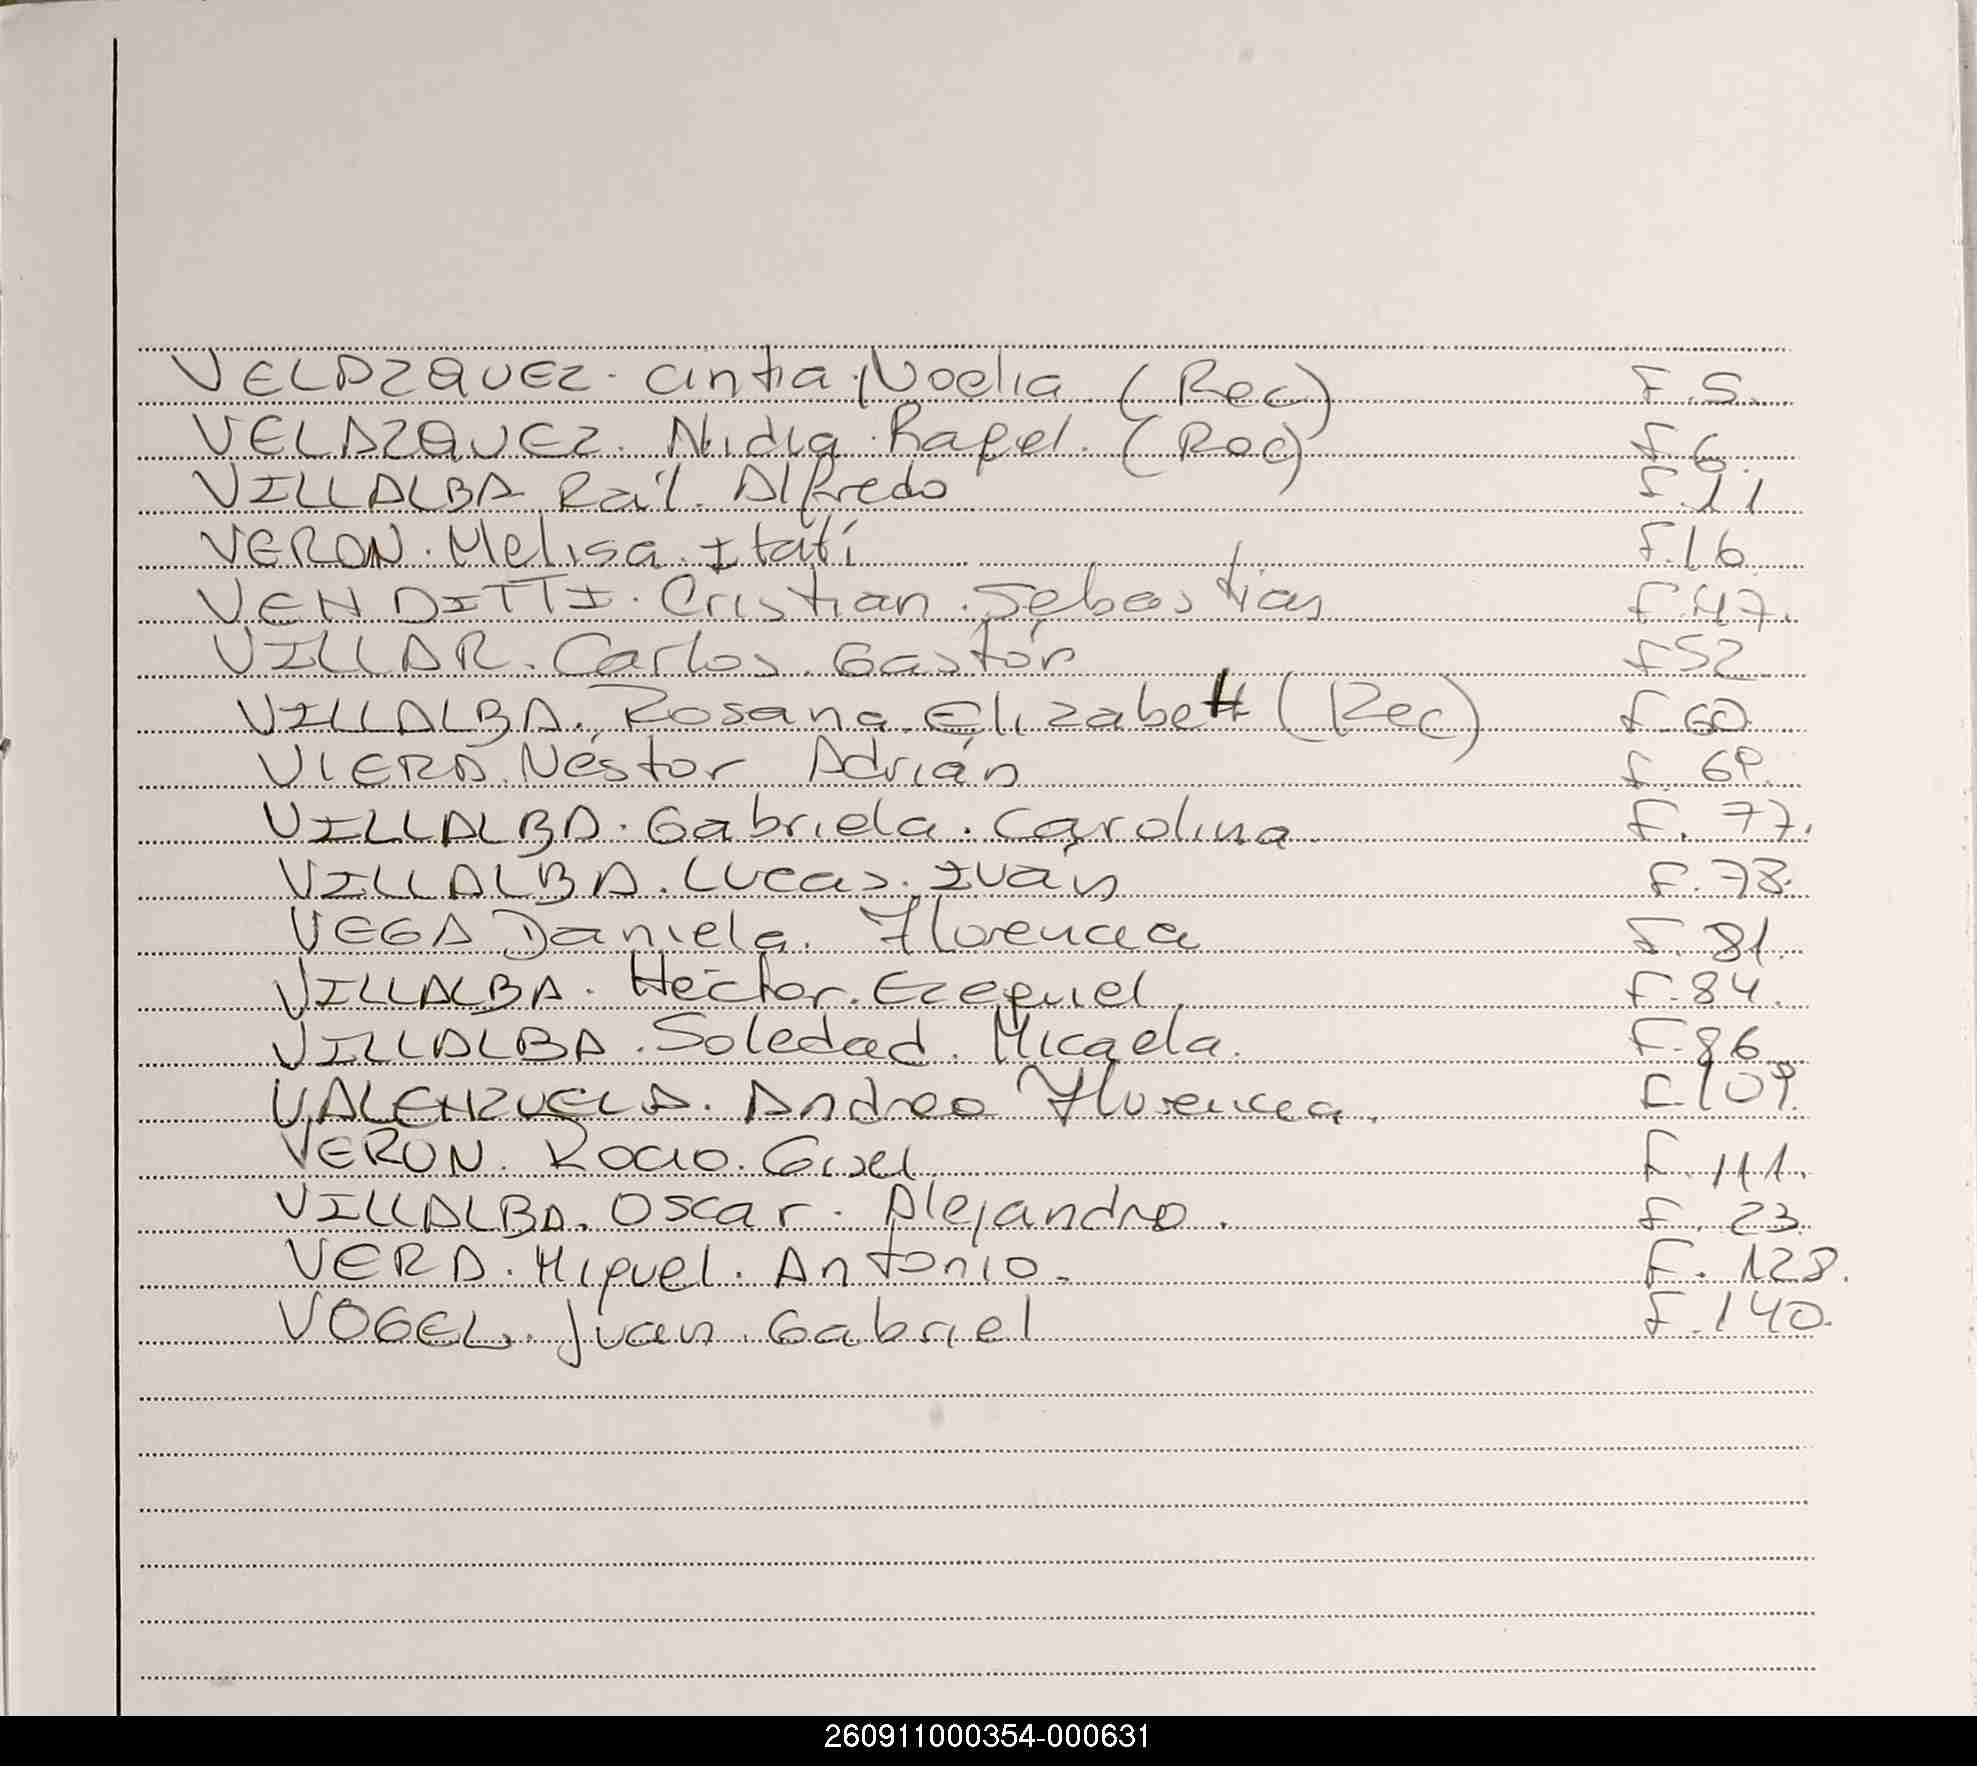 VELAZQUEZ. Cintia. Noelia (Rec) F.5.
VELAZQUEZ. Nidia. Rafel. (Rec) F 6.
VILLALBA Raúl. Alfredo F.11
VERON. Melisa. Itatí F.16
VENDITTI. Cristian. Sebastian F.47.
VILLAR. Carlos. Gastón F52
VILLALBA. Rosana. Elizabett (Rec) F.60.
VIERA. Néstor Adrián F 69.
VILLALBA. Gabriela. Carolina F. 77.
VILLALBA. Lucas. Iván F.78.
VEGA Daniela. Florencia F.81.
VILLALBA. Héctor. Ezequiel. F.84.
VILLALBA. Soledad. Micaela. F.86
VALENZUELA. Andrea Florencia. F.109.
VERON. Rocio. Gisel F.111.
VILLALBA. Oscar. Alejandro. F. 23.
VERA. Miguel. Antonio. F. 128.
VOGEL. Juan. Gabriel F.140.
260911000354-000631